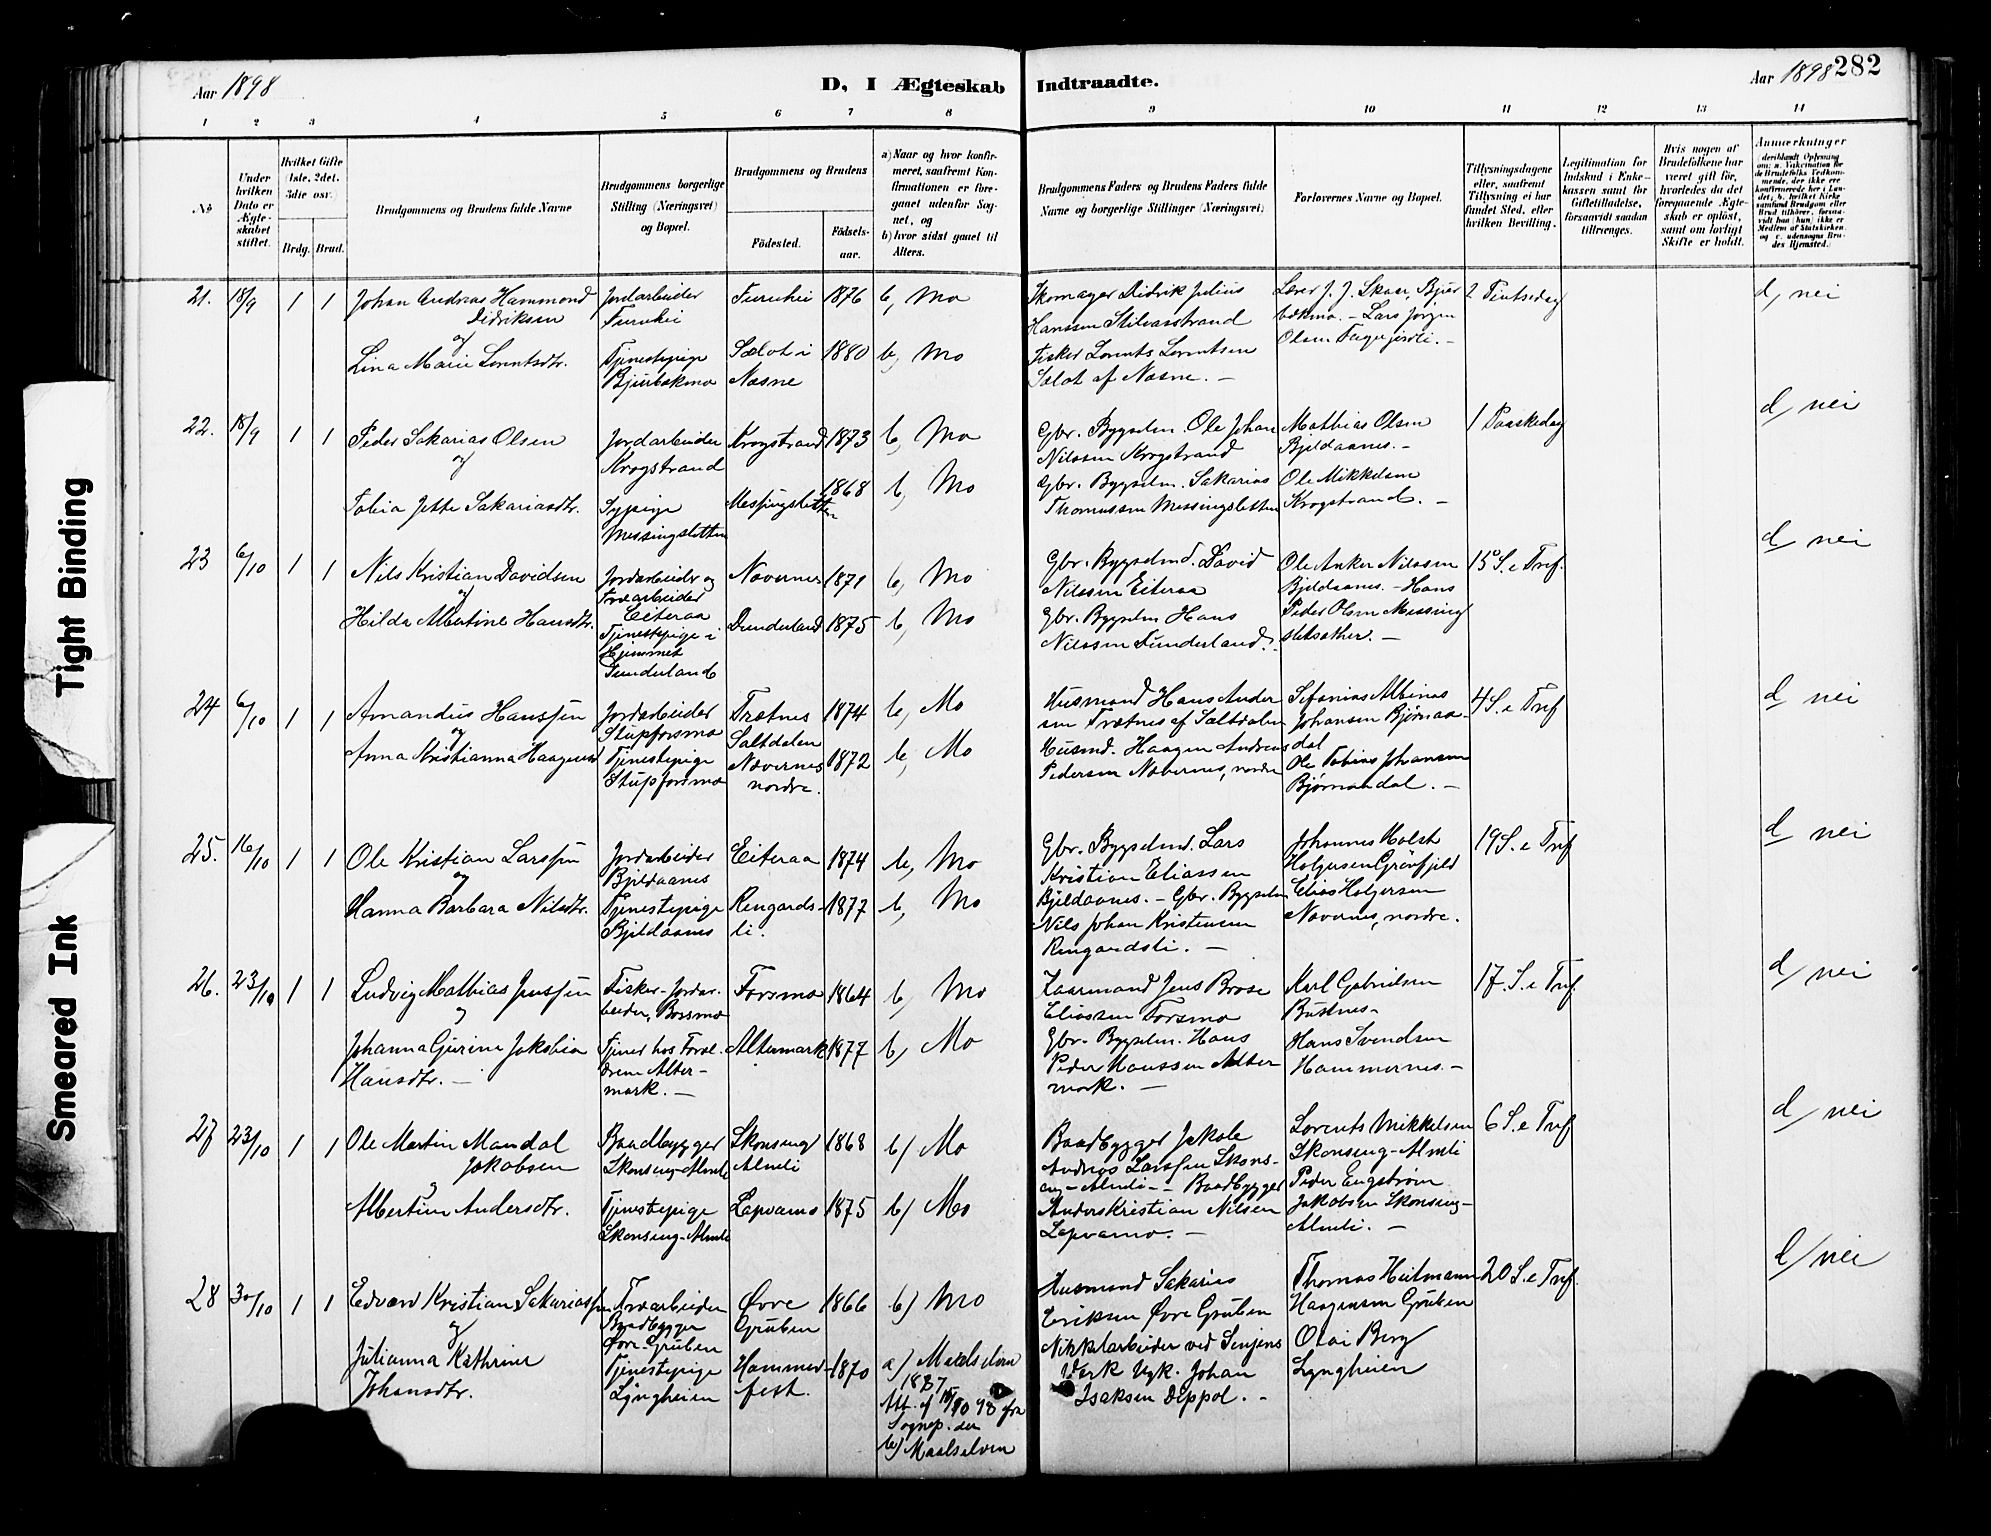 Aar 1898
D, I Ægteskab Indtraadte.
Aar 1898 282
1 2 3 4 5 6 7 8 9 10 11 12 13 14
No
Under hvilken Dato er Ægteskabet stiftet.
Hvilket Gifte (1ste, 2det, 3die osv.)
Brdg. Brud.
Brudgommens og Brudens fulde Navne
Brudgommens borgerlige Stilling (Næringsvei) og Bopæl.
Brudgommens og Brudens
Födested.
Födselsaar.
a) Naar og hvor konfirmeret, saafremt Konfirmationen er foregaaet udenfor Sognet, og
b) hvor sidst gaaet til Alters.
Brudgommens Faders og Brudens Faders fulde Navne og borgerlige Stillinger (Næringsvei)
Forlovernes Navne og Bopæl.
Tillysningsdagene eller, saafremt Tillysning ei har fundet Sted, efter hvilken Bevilling.
Legitimation for Indskud i Enkekassen samt for Giftetilladelse, forsaavidt saadan tiltrænges.
Hvis nogen af Brudefolkene har været gift för, hvorledes da det foregaaende Ægteskab er oplöst, samt om lovligt Skifte er holdt.
Anmærkninger
21. 18/9 1 1
Johan Andreas Hammond
Didriksen
og
Lina Marie Lorntsdtr.
Jordarbeider
Furuhei
Tjenestepige
Bjurbækmo
Furuhei 1876 b, Mo
Næsne 1880 b, Mo
Skomager Didrik Julius
Hanssen Stilvasstrand
Fisker Lorents Lorentsen
af Næsne. —
Lærer J. J. Skaar, Bjur
bækmo. — Lars Jørgen
Olsen
2 Pintsedag
d, nei
22. 18/9 1 1
Peder Sakarias Olsen
og
Tobia Jette Sakariasdtr.
Jordarbeider
Krogstrand
Sypige
Messingsletten
Krogstrand 1873 b, Mo
Messingsletten 1868 b, Mo
Gbr. Bygselm. Ole Johan
Nilssen Krogstrand
Gbr. Bygselm. Sakarias
Thomassen Messingsletten
Mathias Olsen
Bjeldaanes. —
Ole Mikkelsen
Krogstrand. —
1 Paaskedag
d, nei
23 6/10 1 1
Nils Kristian Davidsen
og
Hilda Albertine Hansdtr.
Jordarbeider og
Træarbeider
Eiteraa
Tjenestepige i
Hjemmet
Dunderland
Nævernes 1871 b, Mo
Dunderland 1875 b, Mo
Gbr. Bygselmd. David
Nilssen Eiteraa
Gbr. Bygselm Hans
Nilssen Dunderland.
Ole Anker Nilssen
Bjeldaanes. — Hans
Peder Olsen Messing
sletsether. —
15 S. e Tref.
d, nei
24 6/10 1 1
Amandus Hanssen
og
Anna Kristianna Haagensd
Jordarbeider
Stupforsmo
Tjenestepige
Stupforsmo
Trætnes
Saltdalen 1874 b, Mo
Nævernes
nordre. 1872 b, Mo
Husmand Hans Ander
sen Trætnes af Saltdalen
Husmd. Haagen Andreas
Pedersen Nævernes, nordre
Sefanias Albinos
Johansen Bjørnaa-
dal
Ole Tobias Johansen
Bjørnaadal. —
4 S. e Tref
d, nei
25. 16/10 1 1
Ole Kristian Larssen
og
Hanna Barbara Nilsdtr.
Jordarbeider
Bjeldaanes
Tjenestepige
Bjeldaanes
Eiteraa 1874 b, Mo
Rengards-
li. 1877 b, Mo
Gbr. Bygselmd. Lars
Kristian Eliassen
Bjeldaanes. — Gbr. Bygselm
Nils Johan Kristensen
Rengardsli. —
Johannes Holst
Holgersen Grønfjeld
Elias Holgersen
Nævernes, nordre.
19 S. e Tref
d, nei
26. 23/10 1 1
Ludvig Mathias Jenssen
og
Johanna Gurine Jakobia
Hansdtr. —
Fisker-Jordar-
beider, Forsmo
Tjener hos Foræl-
drene Alter-
mark. —
Forsmo 1864 b, Mo
Altermark 1877 b, Mo
Kaarmand Jens Brose
Eliassen Forsmo
Gbr. Bygselm. Hans
Peder Hanssen Alter
mark. —
Karl Gabrielsen
Bustnes-
Hans Svendsen
Hammernes. —
17. S. e Tref.
d, nei
27 23/10 1 1
Ole Martin Mandal
Jakobsen
og
Albertine Andersdtr.
Baadbygger
Skonseng-Almli
Tjenestepige
Skonseng-Almli
Skonseng
Almli 1868 b) Mo
Lapvamo 1875 b) Mo
Baadbygger Jakob
Andreas Larssen Skons-
eng-Almli — Baadbygger
Anders Kristian Nilsen
Lapvamo. —
Lorents Mikkelsen
Skonseng-Almli
Peder Engstrøm
Jakobsen Skonseng-
Almli. —
6 S. e Tref
d, nei
28 30/10 1 1
Edvard Kristian Sakariassen
og
Julianna Kathrine
Johansdtr.
Træarbeider
Baadbygger
Øvre Gruben
Tjenestepige
Lyngheien
Øvre
Gruben 1866 b) Mo
Hammer-
fest. 1870
a) Maalselven
1887
Att. af 98 fra
Sognep. der
b) Maalselven
Husmand Sakarias
Eriksen Øvre Gruben
Nikkelarbeider ved Senjens
Værk Ugk. Johan
Isaksen Deppol. —
Thomas Heitmann
Haagensen Gruben
Olai Berg
Lyngheien
20 S. e Tref.
d, nei
Tight Binding
Smeared Ink